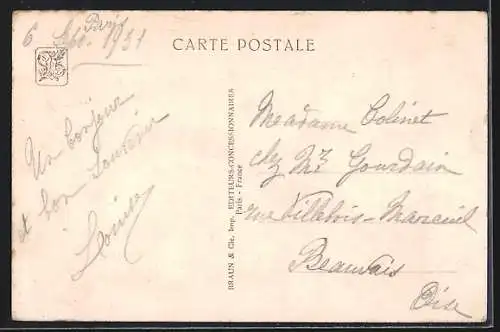 Paris
6 Sep. 1931
CARTE POSTALE
Un bonjour
et bon souvenir
Louise
BRAUN & Cie, Imp. EDITEURS-CONCESSIONNAIRES
Paris - France
Madame Colinet
chez Mr Gourdain
rue Villebois-Mareuil
Beauvais
Oise